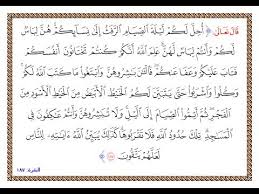 قَالَ تَعَالَى: ﴿ أُحِلَّ لَكُمْ لَيْلَةَ ٱلصِّيَامِ ٱلرَّفَثُ إِلَىٰ نِسَآئِكُمْ ۚ هُنَّ لِبَاسٌ
لَّكُمْ وَأَنتُمْ لِبَاسٌ لَّهُنَّ ۗ عَلِمَ ٱللَّهُ أَنَّكُمْ كُنتُمْ تَخْتَانُونَ أَنفُسَكُمْ
فَتَابَ عَلَيْكُمْ وَعَفَا عَنكُمْ ۖ فَٱلْـَٰٔنَ بَـٰشِرُوهُنَّ وَٱبْتَغُوا۟ مَا كَتَبَ ٱللَّهُ لَكُمْ ۚ
وَكُلُوا۟ وَٱشْرَبُوا۟ حَتَّىٰ يَتَبَيَّنَ لَكُمُ ٱلْخَيْطُ ٱلْأَبْيَضُ مِنَ ٱلْخَيْطِ ٱلْأَسْوَدِ مِنَ
ٱلْفَجْرِ ۖ ثُمَّ أَتِمُّوا۟ ٱلصِّيَامَ إِلَى ٱلَّيْلِ ۚ وَلَا تُبَـٰشِرُوهُنَّ وَأَنتُمْ عَـٰكِفُونَ فِى
ٱلْمَسَـٰجِدِ ۗ تِلْكَ حُدُودُ ٱللَّهِ فَلَا تَقْرَبُوهَا ۗ كَذَٰلِكَ يُبَيِّنُ ٱللَّهُ ءَايَـٰتِهِۦ لِلنَّاسِ
لَعَلَّهُمْ يَتَّقُونَ ﴿١٨٧﴾ ﴾
البقرة: ١٨٧